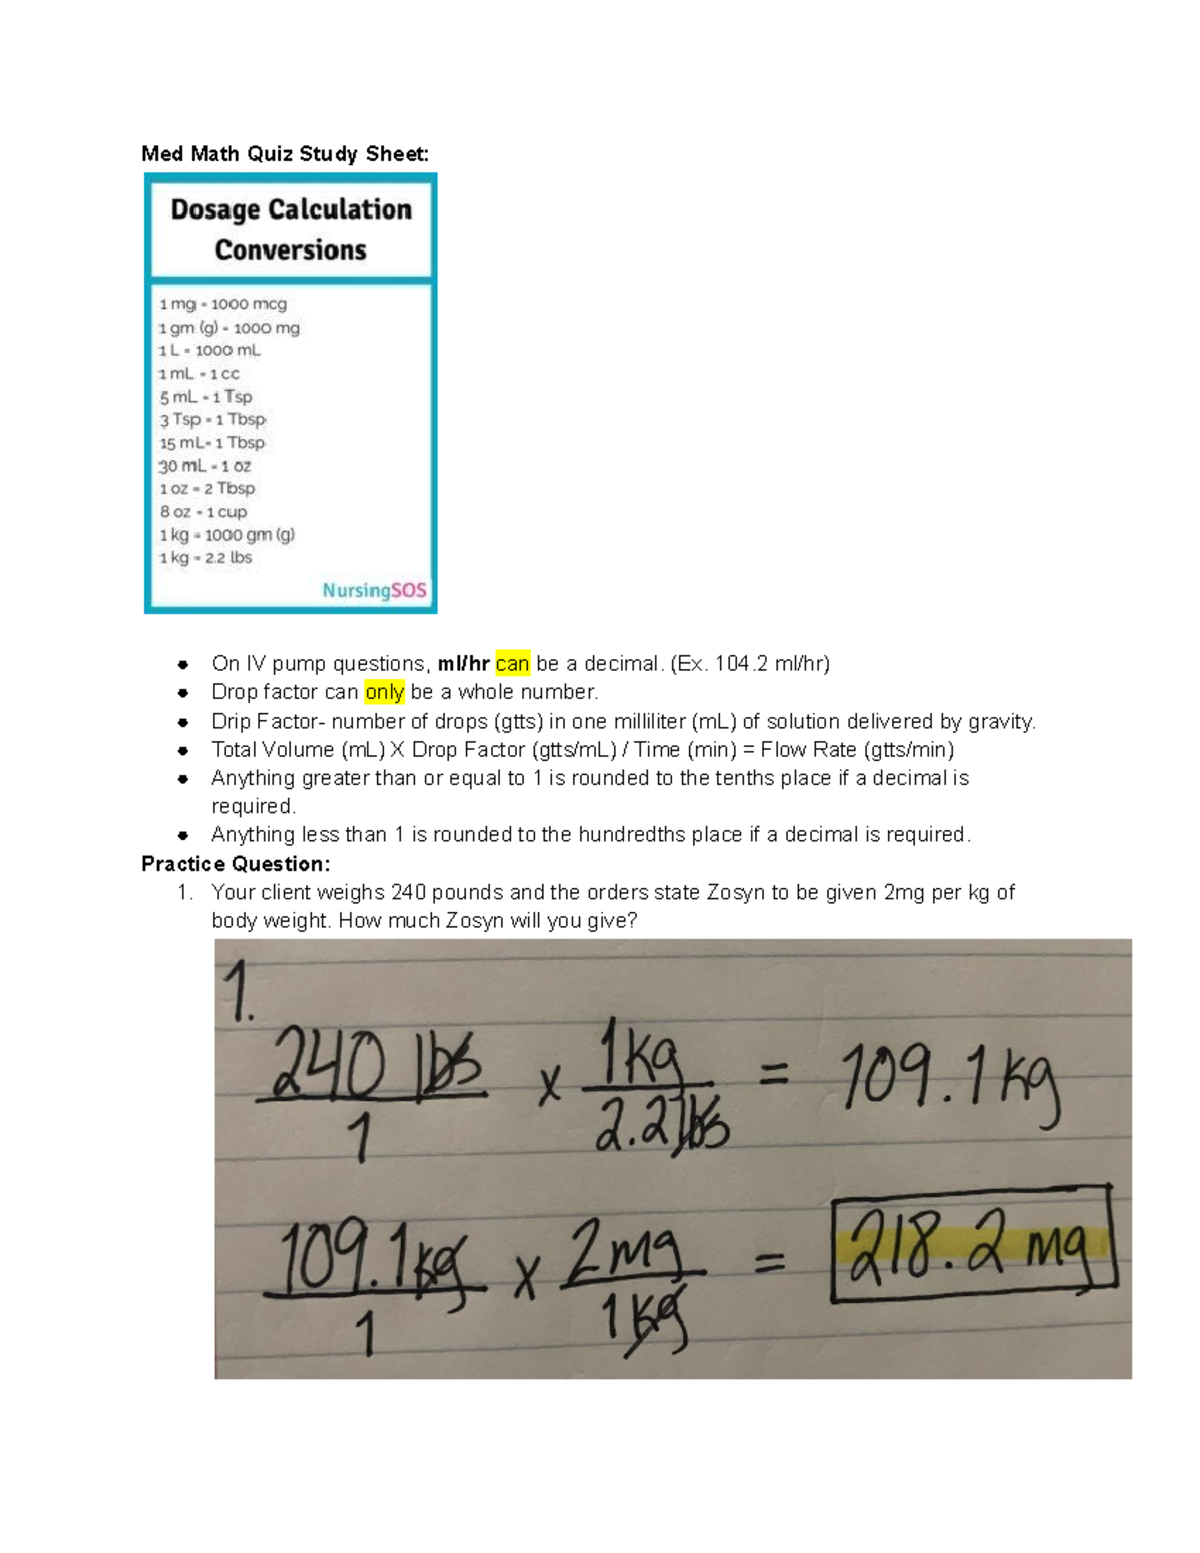 Med Math Quiz Study Sheet:
Dosage Calculation
Conversions
1 mg = 1000 mcg
1 gm (g) = 1000 mg
1 L = 1000 mL
1 mL = 1 cc
5 mL = 1 Tsp
3 Tsp = 1 Tbsp
15 mL= 1 Tbsp
30 mL = 1 oz
1 oz = 2 Tbsp
8 oz = 1 cup
1 kg = 1000 gm (g)
1 kg = 2.2 lbs
NursingSOS
● On IV pump questions, ml/hr can be a decimal. (Ex. 104.2 ml/hr)
● Drop factor can only be a whole number.
● Drip Factor- number of drops (gtts) in one milliliter (mL) of solution delivered by gravity.
● Total Volume (mL) X Drop Factor (gtts/mL) / Time (min) = Flow Rate (gtts/min)
● Anything greater than or equal to 1 is rounded to the tenths place if a decimal is
required.
● Anything less than 1 is rounded to the hundredths place if a decimal is required.
Practice Question:
1. Your client weighs 240 pounds and the orders state Zosyn to be given 2mg per kg of
body weight. How much Zosyn will you give?
1.
240 lbs x 1kg = 109.1kg
1 2.2lbs
109.1kg x 2mg = 218.2 mg
1 1kg